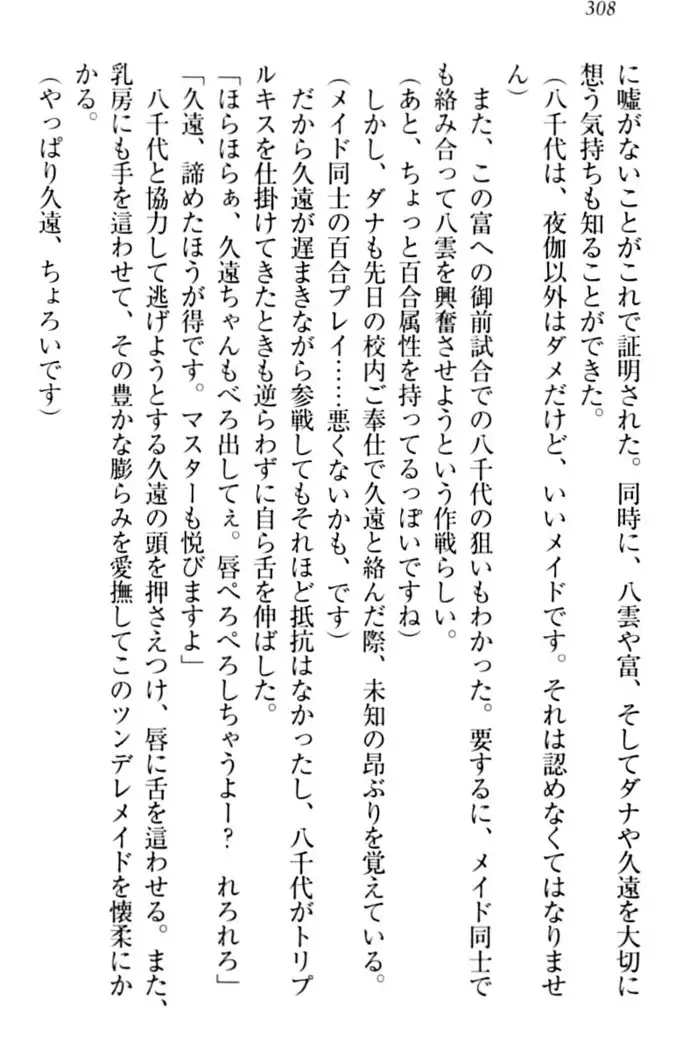 308
に嘘がないことがこれで証明された。同時に、八雲や富、そしてダナや久遠を大切に
想う気持ちも知ることができた。
（八千代は、夜伽以外はダメだけど、いいメイドです。それは認めなくてはなりませ
ん）
また、この富への御前試合での八千代の狙いもわかった。要するに、メイド同士で
も絡み合って八雲を興奮させようという作戦らしい。
（あと、ちょっと百合属性を持ってるっぽいですね）
しかし、ダナも先日の校内ご奉仕で久遠と絡んだ際、未知の昂ぶりを覚えている。
（メイド同士の百合プレイ……悪くないかも、です）
だから久遠が遅まきながら参戦してもそれほど抵抗はなかったし、八千代がトリプ
ルキスを仕掛けてきたときも逆らわずに自ら舌を伸ばした。
「ほらほらぁ、久遠ちゃんもべろ出してぇ。唇ぺろぺろしちゃうよー？　れろれろ」
「久遠、諦めたほうが得です。マスターも悦びますよ」
八千代と協力して逃げようとする久遠の頭を押さえつけ、唇に舌を這わせる。また、
乳房にも手を這わせて、その豊かな膨らみを愛撫してこのツンデレメイドを懐柔にか
かる。
（やっぱり久遠、ちょろいです）